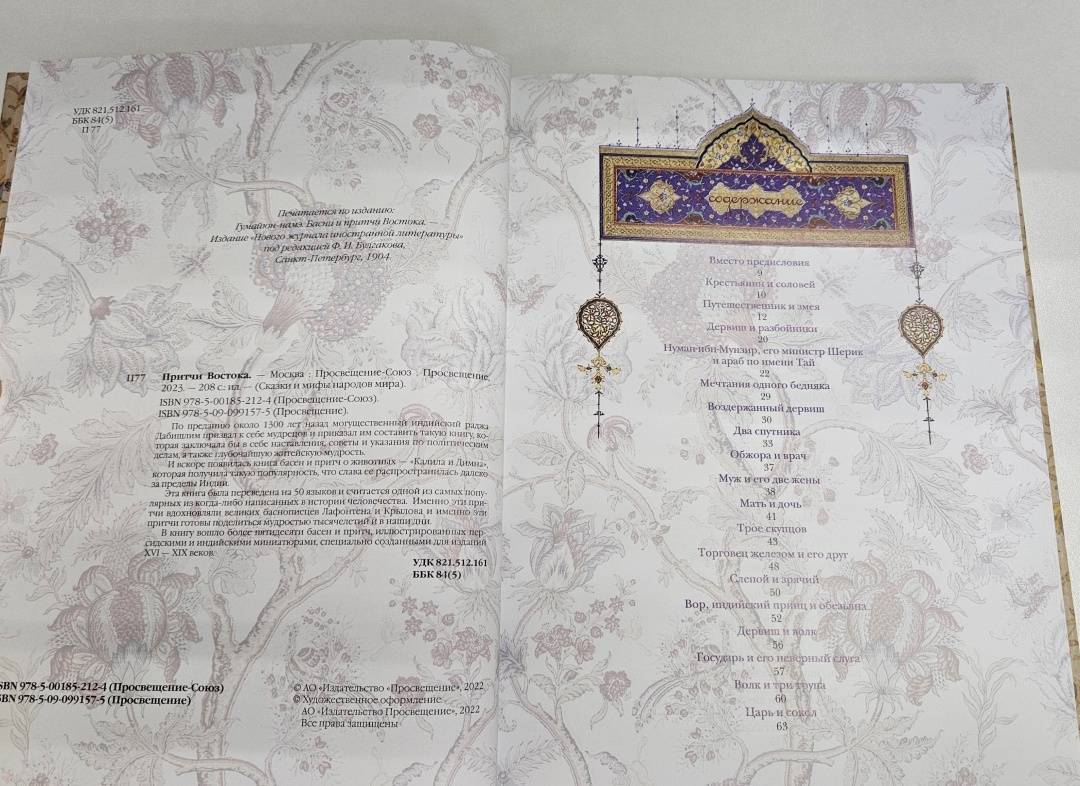 УДК 821.512.161
ББК 84(5)
П 77
Печатается по изданию:
Гумайюн-намэ. Басни и притчи Востока. —
Издание «Нового журнала иностранной литературы»
под редакцией Ф. И. Булгакова,
Санкт-Петербург, 1904.
П77 Притчи Востока. — Москва : Просвещение-Союз : Просвещение,
2023. — 208 с.: ил. — (Сказки и мифы народов мира).
ISBN 978-5-00185-212-4 (Просвещение-Союз).
ISBN 978-5-09-099157-5 (Просвещение).
По преданию около 1300 лет назад могущественный индийский раджа
Дабишлим призвал к себе мудрецов и приказал им составить такую книгу, ко-
торая заключала бы в себе наставления, советы и указания по политическим
делам, а также глубочайшую житейскую мудрость.
И вскоре появилась книга басен и притч о животных — «Калила и Димна»,
которая получила такую популярность, что слава её распространилась далеко
за пределы Индии.
Эта книга была переведена на 50 языков и считается одной из самых попу-
лярных из когда-либо написанных в истории человечества. Именно эти при-
тчи вдохновляли великих баснописцев Лафонтена и Крылова и именно эти
притчи готовы поделиться мудростью тысячелетий и в наши дни.
В книгу вошло более пятидесяти басен и притч, иллюстрированных пер-
сидскими и индийскими миниатюрами, специально созданными для изданий
XVI – XIX веков.
УДК 821.512.161
ББК 84(5)
SBN 978-5-00185-212-4 (Просвещение-Союз)
SBN 978-5-09-099157-5 (Просвещение)
© АО «Издательство «Просвещение», 2022
© Художественное оформление.
АО «Издательство Просвещение», 2022
Все права защищены
содержание
Вместо предисловия
9
Крестьянин и соловей
10
Путешественник и змея
12
Дервиш и разбойники
20
Нуман-ибн-Мунзир, его министр Шерик
и араб по имени Тай
22
Мечтания одного бедняка
29
Воздержанный дервиш
30
Два спутника
33
Обжора и врач
37
Муж и его две жены
38
Мать и дочь
41
Трое скупцов
43
Торговец железом и его друг
48
Слепой и зрячий
50
Вор, индийский принц и обезьяна
52
Дервиш и волк
56
Государь и его неверный слуга
57
Волк и три трупа
60
Царь и сокол
63